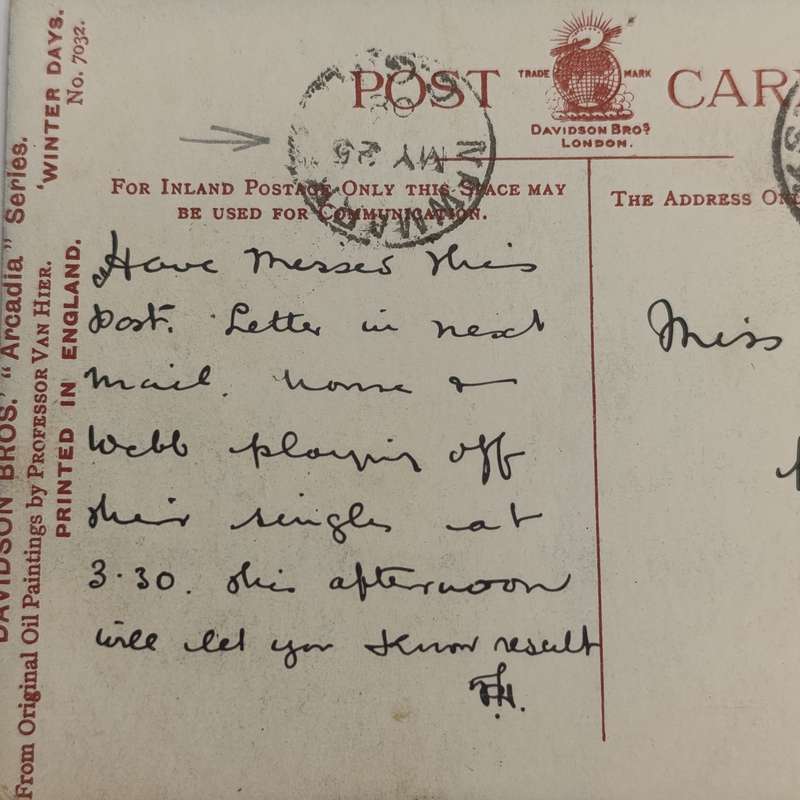 POST CAR
TRADE MARK
DAVIDSON BROS.
LONDON.
NEWMARKET
MY 25
FOR INLAND POSTAGE ONLY THIS SPACE MAY
BE USED FOR COMMUNICATION.
THE ADDRESS ONL
Have messed this
post. Letter in next
mail. &
Webb playing off
their singles at
3.30. this afternoon
will let you know result
F.H.
Miss
DAVIDSON BROS.' "Arcadia" Series.
From Original Oil Paintings by PROFESSOR VAN HIER.
PRINTED IN ENGLAND.
'WINTER DAYS.
No. 7032.